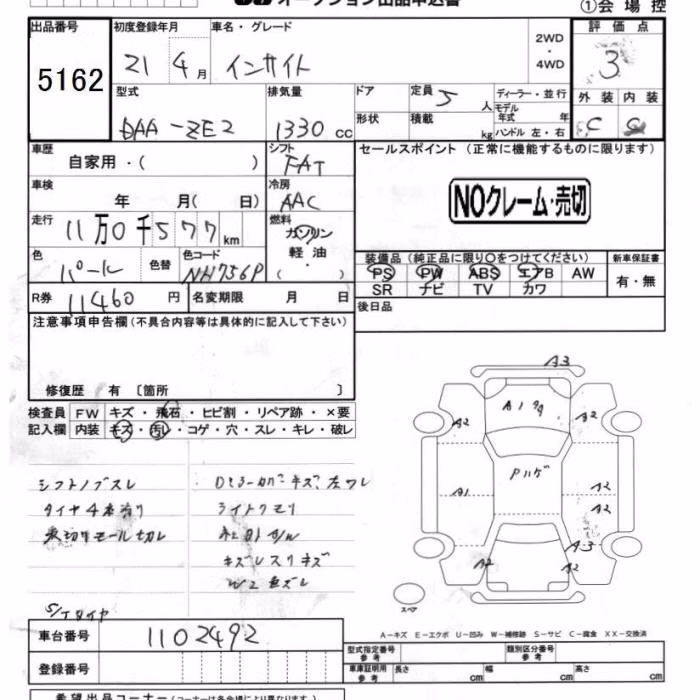 オークション出品申込書
①会場控
出品番号
初度登録年月
車名・グレード
2WD
・
4WD
評価点
5162
21
4月
インサイト
3
型式
排気量
ドア
定員
5
人
ディーラー・並行
モデル
年式
年
外装
内装
DAA-ZE2
1330 cc
形状
積載
kg
ハンドル 左・右
C
C
車歴
シフト
セールスポイント（正常に機能するものに限ります）
自家用・（ ）
FAT
車検
冷房
NOクレーム・売切
年 月（ 日）
AAC
走行
11万0千577km
燃料
ガソリン
軽油・
（ ）
装備品（純正品に限り〇をつけてください）
新車保証書
色
パール
色替
色コード
NH756P
PS
PW
ABS
エアB
AW
有・無
SR
ナビ
TV
カワ
R券
11460円
名変期限
月 日
後日品
注意事項申告欄（不具合内容等は具体的に記入して下さい）
修復歴 有〔箇所 〕
検査員
FW
キズ・飛石・ヒビ割・リペア跡・×要
記入欄
内装
キズ・汚レ・コゲ・穴・スレ・キレ・破レ
A3
A1
A2
A2
シフトノブスレ
タイヤ4本
Pハゲ
A1
A2
A2
ライトクモリ
A3
A2
A2
スペア
S/Tタイヤ
A-キズ E-エクボ U-凹み W-補修跡 S-サビ C-腐食 XX-交換済
車台番号
1102492
型式指定番号
参考
類別区分番号
参考
登録番号
車庫証明用
参考
長さ
cm
幅
cm
高さ
cm
希望出品コーナー